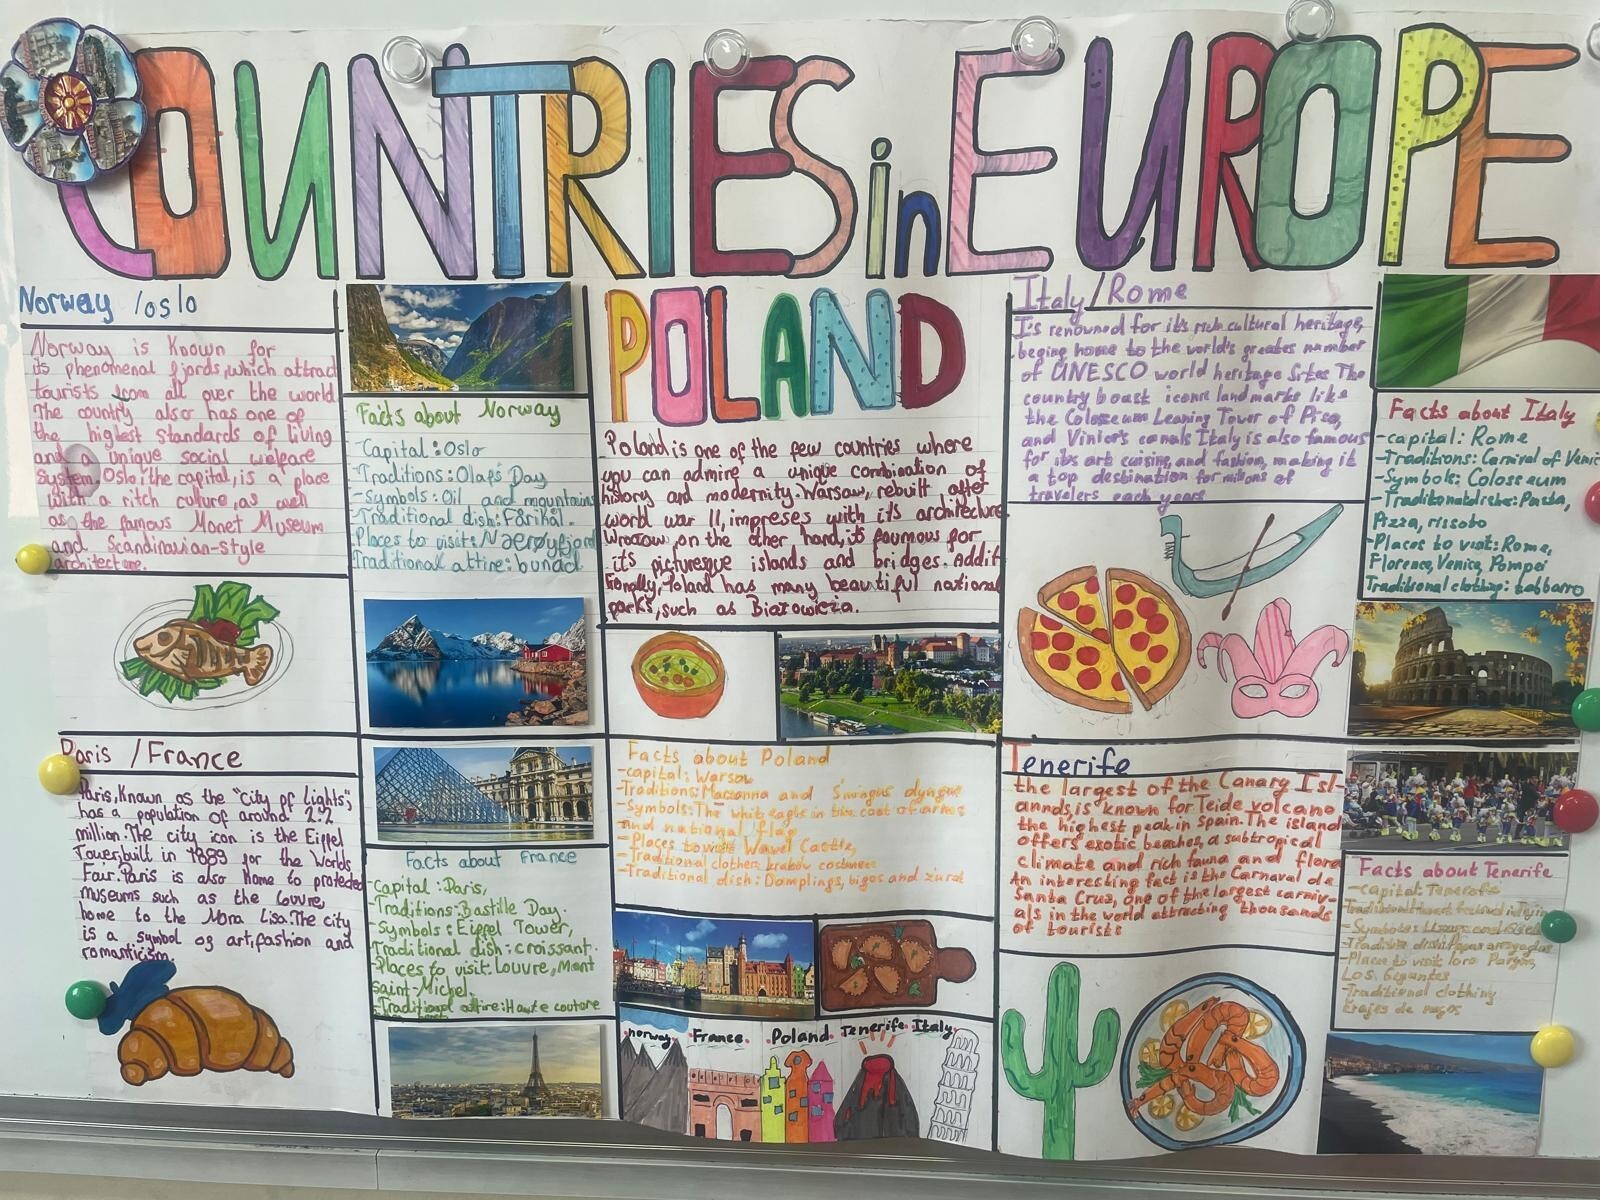 COUNTRIES in EUROPE
Norway /oslo
Norway is known for
its phenomenal fjords, which attract
tourists from all over the world
The country also has one of
the highest standards of living
and unique social welfare
system Oslo, the capital, is a place
with a ritch culture, as well
as the famous Monet Museum
and Scandinavian-style
architecture.
Facts about Norway
-Capital: Oslo
-Traditions: Olaf's Day
-symbols: Oil and mountains
-Traditional dish: Fårikål.
-Places to visit: Nærøyfjord
Traditional attire: bunad
POLAND
Poland is one of the few countries where
you can admire a unique combination of
history and modernity. Warsaw, rebuilt after
world war II, impreses with its architecture
Wrocaw, on the other hand, is foumous for
its picturesque islands and bridges. Addit
ionally, Poland has many beautiful national
parks, such as Białowieża.
Facts about Poland
-capital: Warsaw
-Traditions: Marzanna and Śmingus dyngus
-Symbols: The white eagle in the coat of arms
and national flag
-Places to visit Wawel Castle,
-Traditional clothes: kraków costiumee
-Traditional dish: Damplings, bigos and żurat
Italy/Rome
I's renowned for it's rich cultural heritage,
beging home to the world's greates number
of UNESCO world heritage Sites The
country boast iconic landmarks like
the Colosseum Leaning Tower of Pisa,
and Vinice's canals Italy is also famous
for its art cuising, and fashion, making it
a top destination for milions of
travelers each years
Facts about Italy
-capital: Rome
-Traditions: Carnival of Venic
-Symbols: Colosseum
-Traditional dishe: Pasta,
Pizza, rissoto
-Places to visit: Rome,
Florence, Venice, Pompei
Traditional clothing: tabbarro
Paris /France
Paris, Known as the "city of lights",
has a population of around 2.2
million. The city icon is the Eiffel
Tower, built in 1889 for the Worlds
Fair. Paris is also Home to protected
museums such as the Louvre,
home to the Mona Lisa. The city
is a symbol og art, fashion and
romanticism.
Facts about France
-Capital: Paris,
-Traditions: Bastille Day.
-Symbols: Eiffel Tower,
Traditional dish: croissant.
-Places to visit: Louvre, Mont
saint-Michel.
-Traditional attire: Haute couture
Tenerife
the largest of the Canary Isl-
annds, is known for Teide volcano
the highest peak in Spain. The island
offers exotic beaches, a subtropical
climate and rich fauna and flora
An interesting fact is the Carnaval de
Santa Cruz, one of the largest carniv-
als in the world attracting thousands
of tourists
Facts about Tenerife
-capital: Tenerefe
-Symbols:
-Tradition dish: Papas arrugadas
-Place to visit loro Parque,
Los Gegantes
-Traditional clothing
trajes de magos
norway France. Poland Tenerife Italy